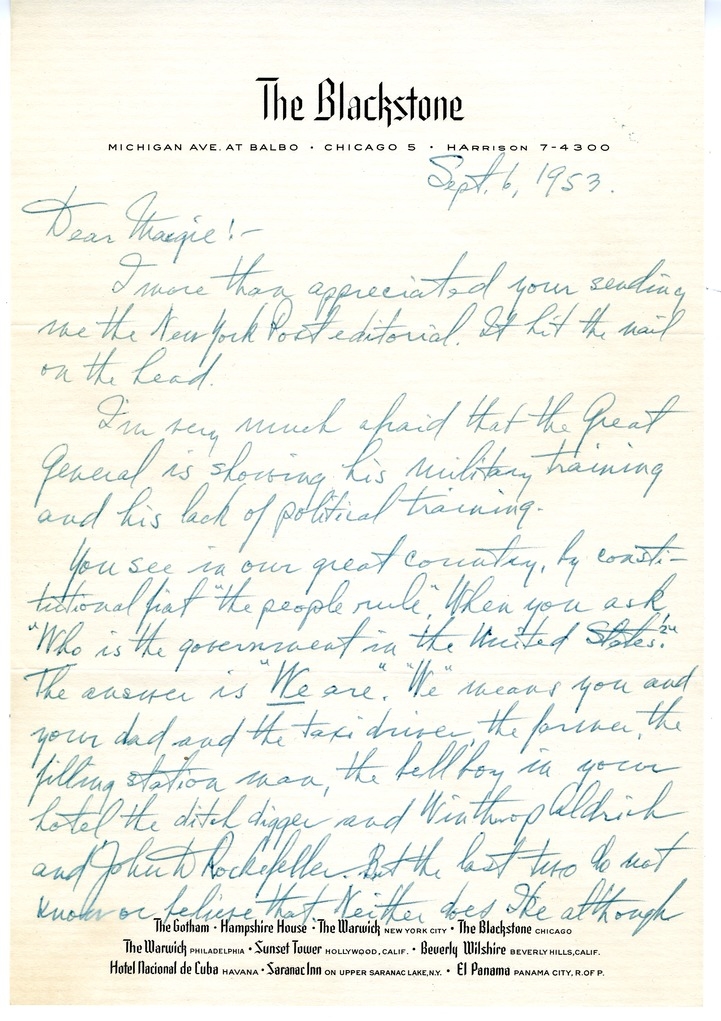 The Blackstone
MICHIGAN AVE. AT BALBO • CHICAGO 5 • HARRISON 7-4300
Sept. 6, 1953.
Dear Margie!-
I more than appreciated your sending
me the New York Post editorial. It hit the nail
on the head.
I'm very much afraid that the Great
General is showing his military training
and his lack of political training.
You see in our great country, by consti-
tutional fiat "the people rule". When you ask,
"Who is the government in the United States?"
The answer is "We are". "We" means you and
your dad and the taxi driver, the farmer, the
filling station man, the bell boy in your
hotel the ditch digger and Winthrop Aldrich
and John D Rockefeller. But the last two do not
know or believe that. Neither does Ike although
The Gotham • Hampshire House • The Warwick NEW YORK CITY • The Blackstone CHICAGO
The Warwick PHILADELPHIA • Sunset Tower HOLLYWOOD, CALIF. • Beverly Wilshire BEVERLY HILLS, CALIF.
Hotel Nacional de Cuba HAVANA • Saranac Inn ON UPPER SARANAC LAKE, N.Y. • El Panama PANAMA CITY, R. OF P.